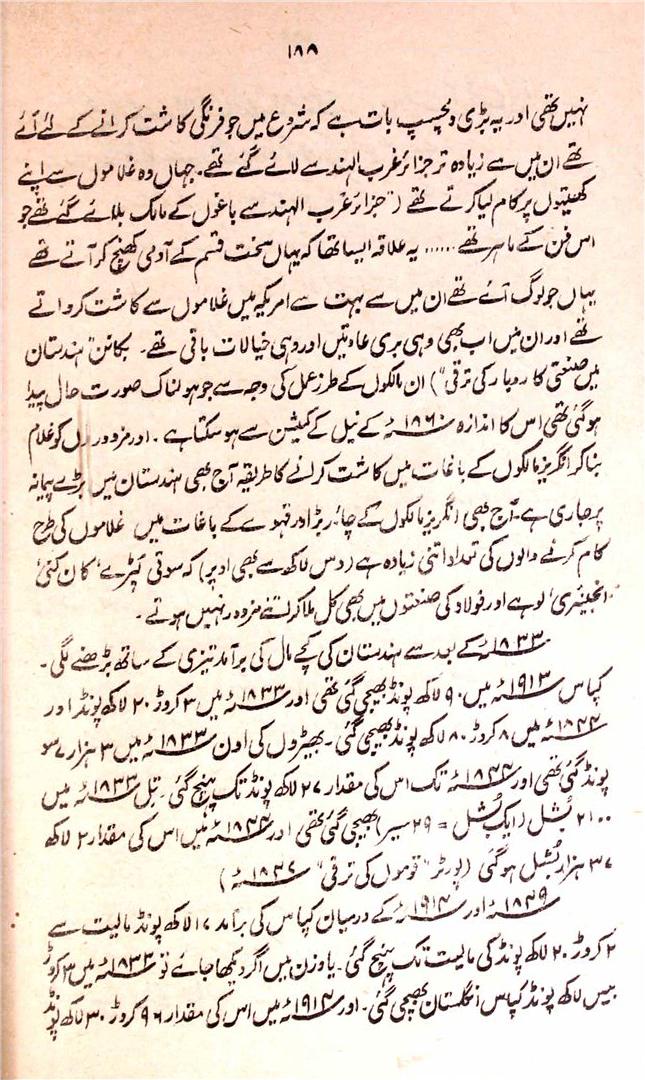 ۱۸۸
نہیں تھی اور یہ بڑی دلچسپ بات ہے کہ شروع میں جو فرنگی کاشت کرانے کے لئے آئے
تھے ان میں سے زیادہ تر جزائر غرب الہند سے لائے گئے تھے۔ جہاں وہ غلاموں سے اپنے
کھیتوں پر کام لیا کرتے تھے ("جزائر غرب الہند سے باغوں کے مالک بلائے گئے تھے جو
اس فن کے ماہر تھے ...... یہ علاقہ ایسا تھا کہ یہاں سخت قسم کے آدمی کھنچ کر آتے تھے
یہاں جو لوگ آئے تھے ان میں سے بہت سے امریکہ میں غلاموں سے کاشت کرواتے
تھے اور ان میں اب بھی وہی بری عادتیں اور وہی خیالات باقی تھے۔ بکانن "ہندستان
میں صنعتی کاروبار کی ترقی") ان مالکوں کے طرز عمل کی وجہ سے جو ہولناک صورت حال پیدا
ہو گئی تھی اس کا اندازہ ۱۸۶۰ء کے نیل کے کمیشن سے ہو سکتا ہے۔ اور مزدوروں کو غلام
بنا کر انگریز مالکوں کے باغات میں کاشت کرانے کا طریقہ آج بھی ہندستان میں بڑے پیمانہ
پر جاری ہے۔ آج بھی انگریز مالکوں کے چائے، ربڑ اور قہوے کے باغات میں غلاموں کی طرح
کام کرنے والوں کی تعداد اتنی زیادہ ہے (دس لاکھ سے بھی اوپر) کہ سوتی کپڑے، کان کنی،
انجینیری، لوہے اور فولاد کی صنعتوں میں بھی کل ملا کر اتنے مزدور نہیں ہوتے۔
۱۸۳۳ء کے بعد سے ہندستان کی کچے مال کی برآمد تیزی کے ساتھ بڑھنے لگی۔
کپاس ۱۹۱۳ء میں ۹۰ لاکھ پونڈ بھیجی گئی تھی اور ۱۸۳۳ء میں ۳ کروڑ ۲۰ لاکھ پونڈ اور
۱۸۴۴ء میں ۸ کروڑ ۸۰ لاکھ پونڈ بھیجی گئی۔ بھیڑوں کی اون ۱۸۳۳ء میں ۳ ہزار ۷ سو
پونڈ گئی تھی اور ۱۸۴۴ء تک اس کی مقدار ۲۷ لاکھ پونڈ تک پہنچ گئی۔ تل ۱۸۳۳ء میں
۲۱۰۰ بُشل (ایک بُشل = ۲۹ سیر) بھیجی گئی تھی اور ۱۸۴۴ء میں اس کی مقدار ۲ لاکھ
۳۷ ہزار بُشل ہو گئی (پورٹر "قوموں کی ترقی" ۱۸۴۷ء)
۱۸۴۹ء اور ۱۹۱۴ء کے درمیان کپاس کی برآمد ۱۷ لاکھ پونڈ مالیت سے
۲ کروڑ ۲۰ لاکھ پونڈ کی مالیت تک پہنچ گئی۔ یا وزن میں اگر دیکھا جائے تو ۱۸۳۳ء میں ۳ کروڑ
بیس لاکھ پونڈ کپاس انگلستان بھیجی گئی۔ اور ۱۹۱۴ء میں اس کی مقدار ۹۶ کروڑ ۳۰ لاکھ پونڈ